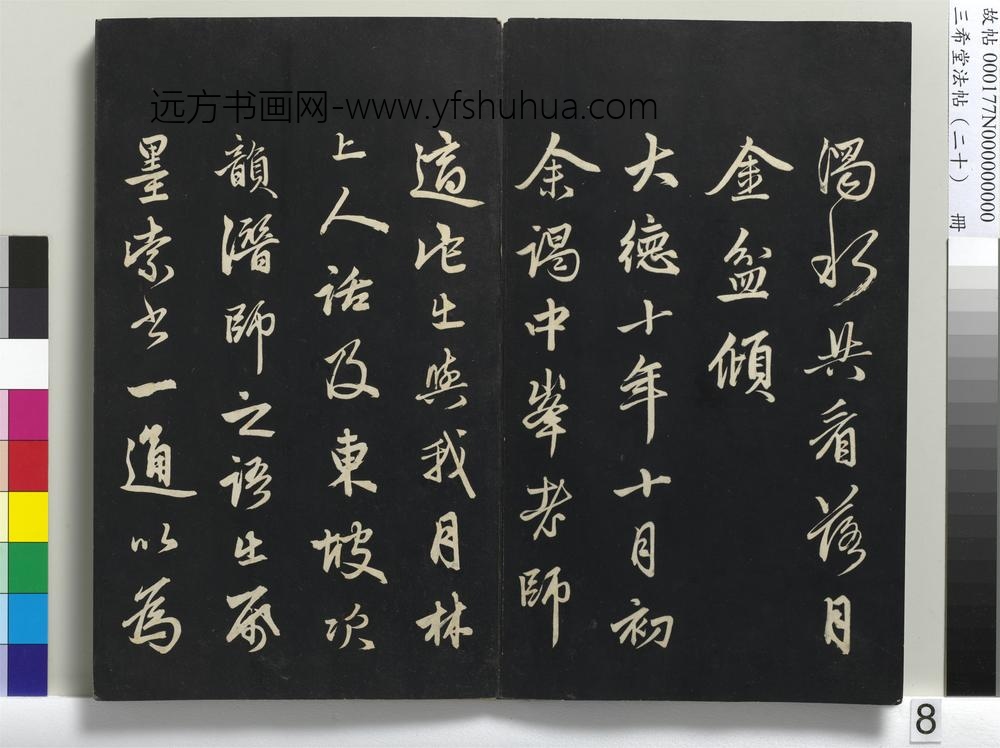 濁水共看落月
金盆傾
大德十年十月初
余謁中峯老師
適佗出與我月林
上人話及東坡次
韻潛師之語出帋
墨索書一通以為
远方书画网-www.yfshuhua.com
故帖 000177N000000000
三希堂法帖（二十） 冊
8